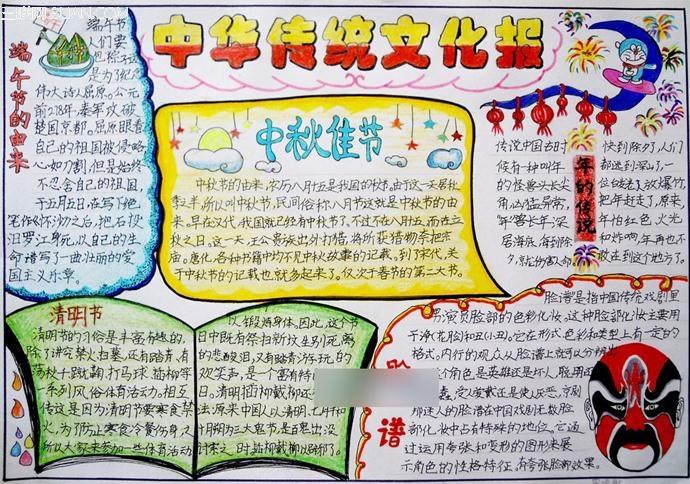 中华传统文化报
端午节的由来
端午节
人们要
是为了纪念
伟大诗人屈原。公元
前278年,秦军攻破
楚国京都。屈原眼看
自己的祖国被侵略
心如刀割,但是始终
不忍舍自己的祖国
于五月五日,在写下绝
笔作《怀沙》之后,抱石投
汨罗江身死,以自己的生
命谱写了一曲壮丽的爱
国主义乐章。
中秋佳节
中秋节的由来,农历八月十五是我国的中秋,由于这一天居秋
季之半,所以叫中秋节,民间俗称八月节这就是中秋节的由
来。早在汉代,我国就已经有中秋节了,不过不在八月十五,而在立
秋之日,这一天,王公贵族出外打猎,将所获猎物祭把宗
庙。唐化,各种书籍中均不见中秋故事的记载,到了宋代,关
于中秋节的记载也就多起来了。仅次于春节的第二大节。
年的传说
传说中国古时
候有一种叫年
的怪兽头长尖
角,凶猛异常,
年兽长年深
居海底,每到除
夕,
快到除夕人们
都逃到深山,一
位放爆竹,
把年赶走了,原来,
年怕红色,火光
和炸响,年再也不
敢到这个地方了。
清明节
清明节的习俗是丰富有趣的,
除了讲究禁火扫墓,还有踏青,
荡秋千踢蹴鞠打马球插柳等一
系列风俗体育活动。相
传这是因为清明节要寒食禁
火,为了防止寒食冷餐伤身,
所以大家来参加一些体育活动
以锻炼身体,因此,这个节
日中既有祭扫新坟生别死离
的悲酸泪,又有踏青游玩的
欢笑声,是一个富有特
清明插柳戴柳还
法:原来中国人以清明、七月半和
十月朔为三大鬼节,是百鬼出没
讨索之时
脸谱
脸谱是指中国传统戏剧里
男演员脸部的色彩化妆,这种脸部化妆主要用
于净(花脸)和丑(小丑),它在形式色彩和类型上有一定的
格式,内行的观众从脸谱上就可以分辨出
个角色是英雄还是坏人,
京剧
那迷人的脸谱在中国戏剧无数脸
部化妆中占有特殊的地位,它通
过运用夸张和变形的图形来展
示角色的性格特征,有夸张脸部效果。